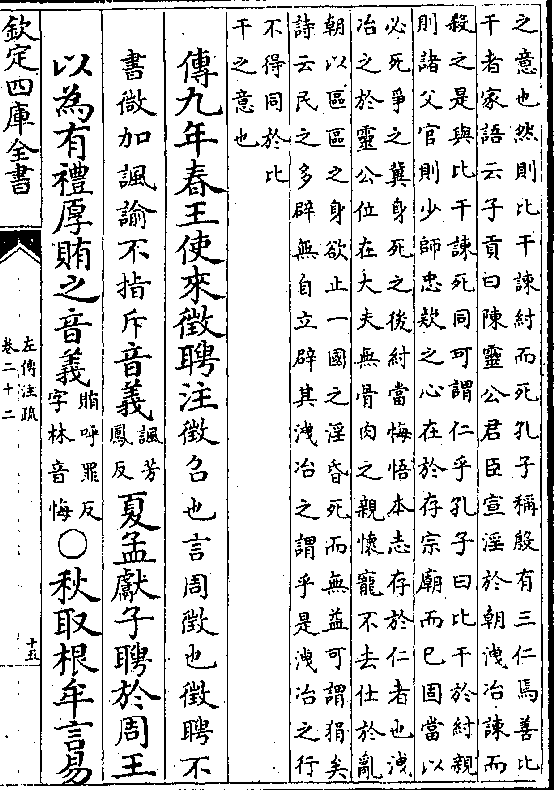 之意也然則比干諫紂而死孔子稱殷有三仁焉善比
干者家語云子貢曰陳靈公君臣宣淫於朝洩冶諫而
殺之是與比干諫死同可謂仁乎孔子曰比干於紂親
則諸父官則少師忠欵之心在於存宗廟而已固當以
必死爭之冀身死之後紂當悔悟本志存於仁者也洩
冶之於靈公位在大夫無骨肉之親懷寵不去仕於亂
朝以區區之身欲止一國之淫昏死而無益可謂狷矣
詩云民之多辟無自立辟其洩冶之謂乎是洩冶之行
不得同於比
干之意也
傳九年春王使來徵聘注徵召也言周徵也徵聘不
書微加諷諭不指斥音義諷芳鳳反夏孟獻子聘於周王
以為有禮厚賄之音義賄呼罪反字林音悔○秋取根牟言易
欽定四庫全書
左傳注疏
卷二十二
十五